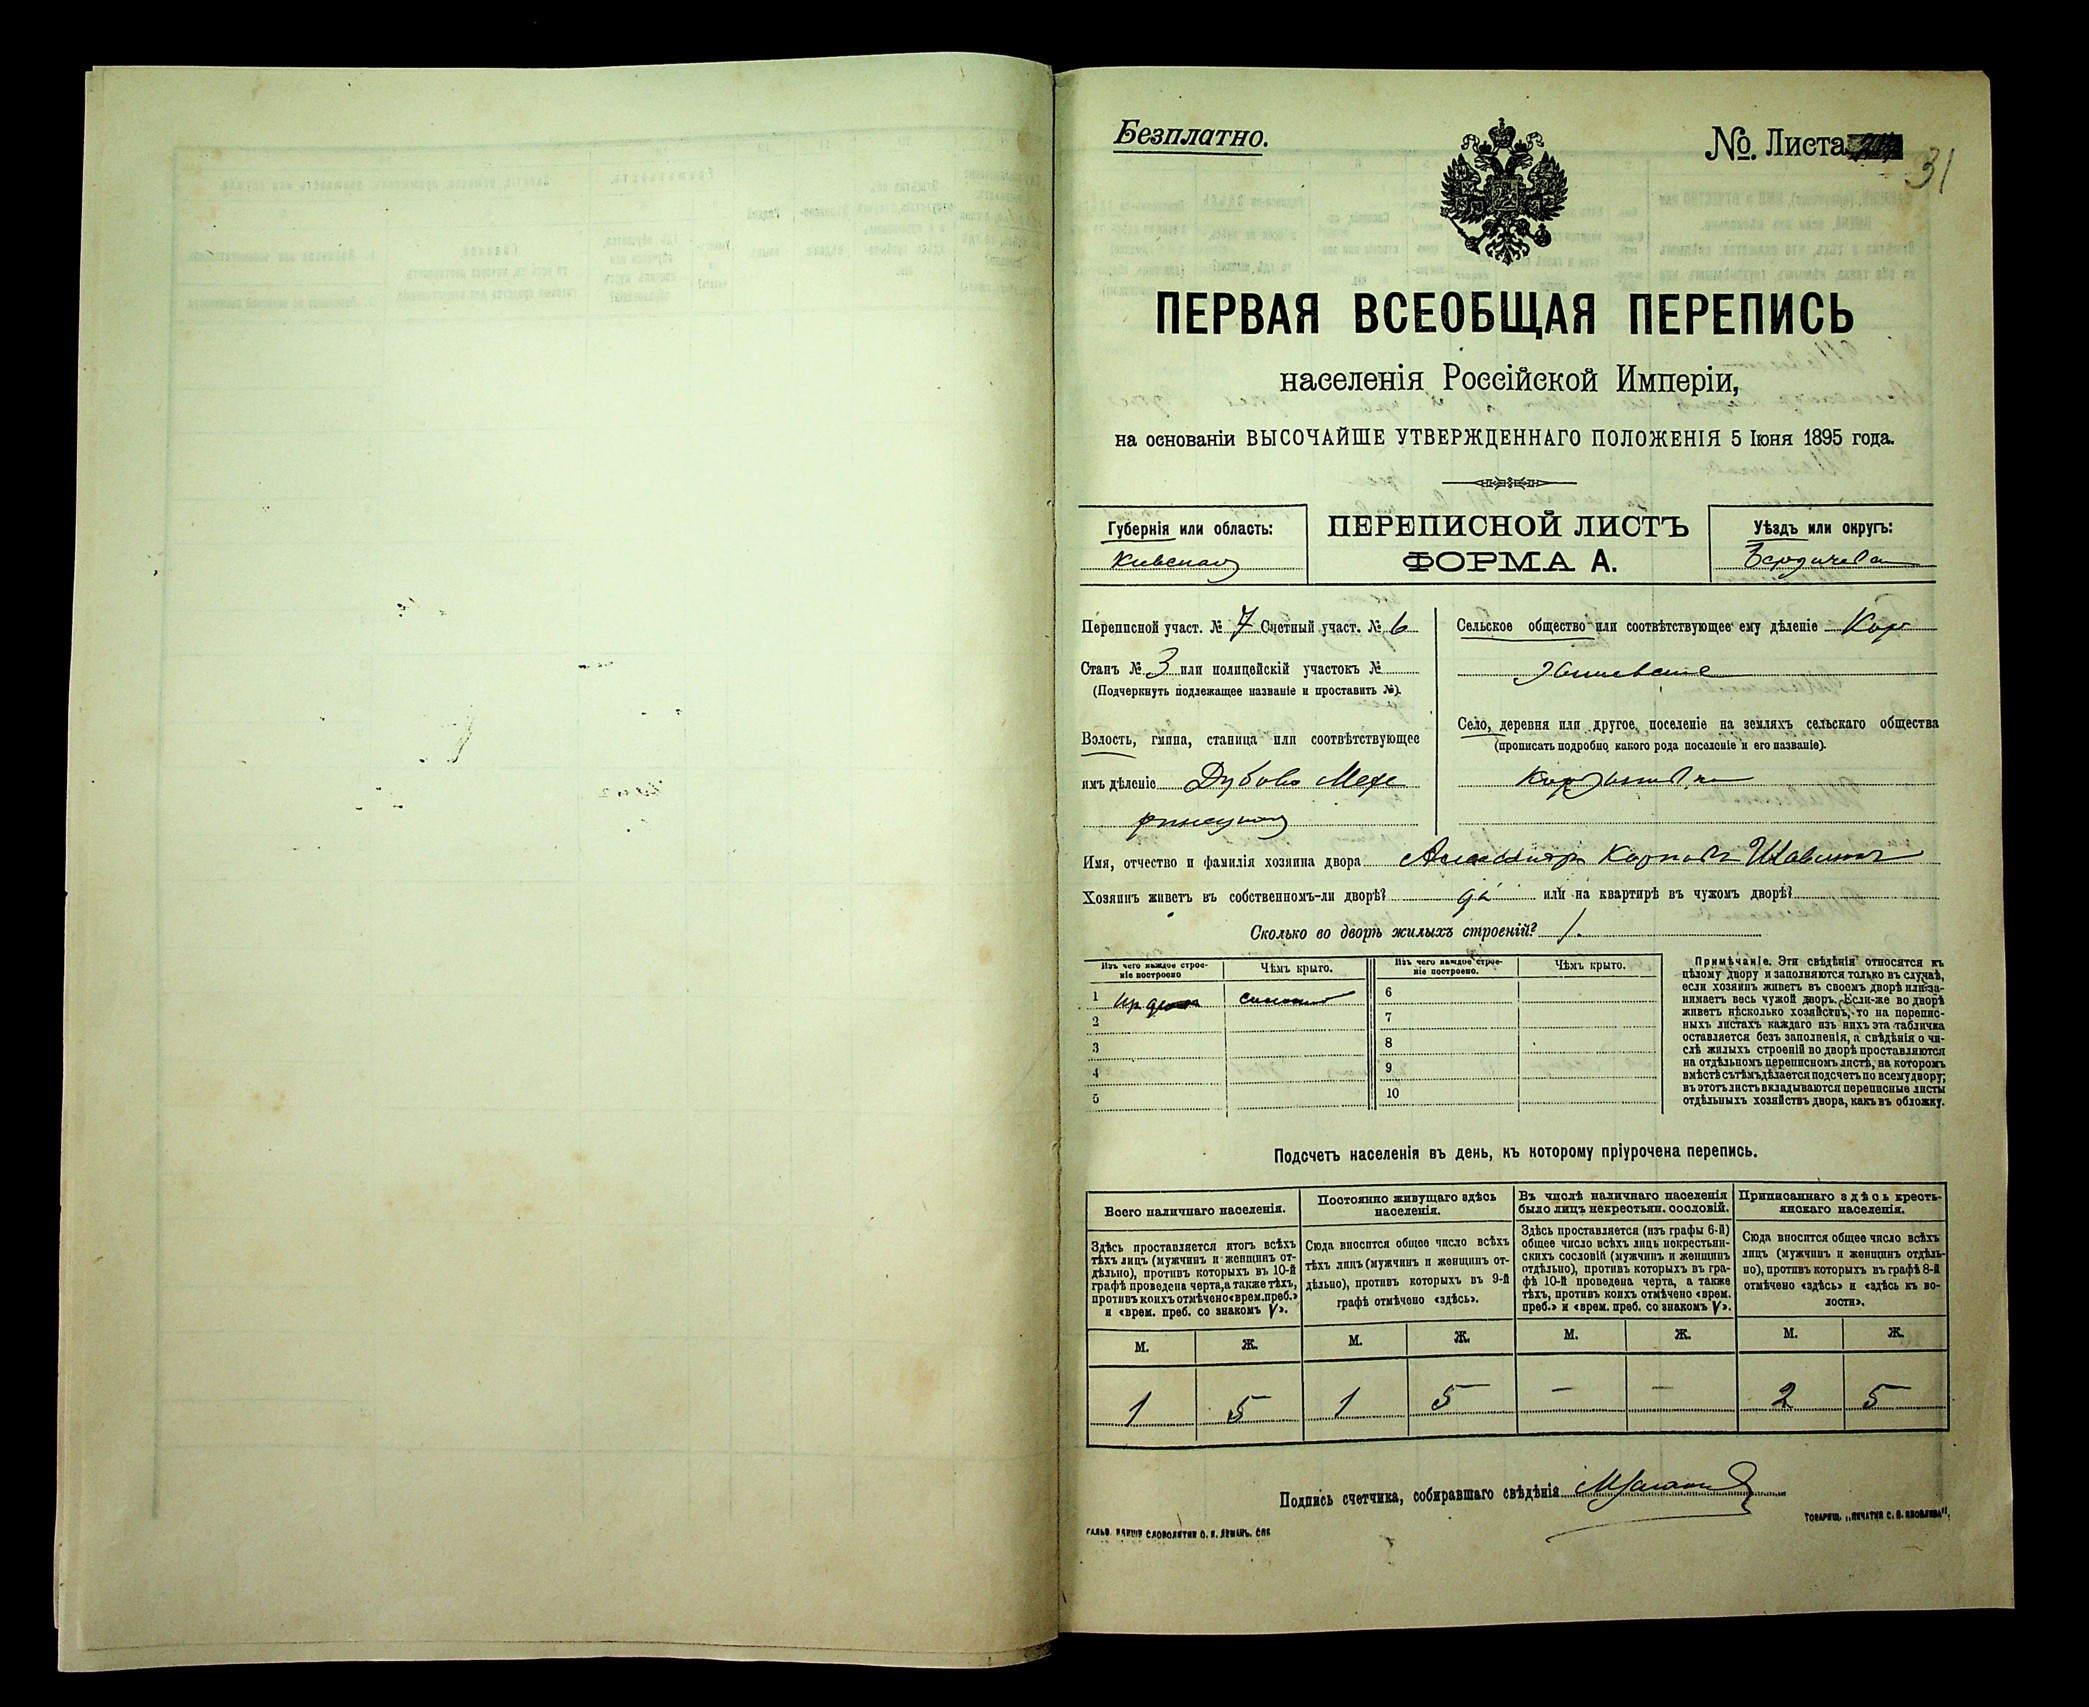 Безплатно.
№. Листа
31
ПЕРВАЯ ВСЕОБЩАЯ ПЕРЕПИСЬ
населенія Россійской Имперіи,
на основаніи ВЫСОЧАЙШЕ УТВЕРЖДЕННАГО ПОЛОЖЕНІЯ 5 Іюня 1895 года.
Губернія или область:
Киевская
ПЕРЕПИСНОЙ ЛИСТЪ
ФОРМА А.
Уѣздъ или округъ:
Бердичевск
Переписной участ. № 7 Счетный участ. № 6
Станъ № 3 или полицейскій участокъ №
(Подчеркнуть подлежащее названіе и проставить №).
Волость, гмина, станица или соотвѣтствующее
имъ дѣленіе Дубово Меже
ринецкая
Сельское общество или соотвѣтствующее ему дѣленіе Кор
Село, деревня или другое поселеніе на земляхъ сельскаго общества
(прописать подробно какого рода поселеніе и его названіе).
Имя, отчество и фамилія хозяина двора Александръ Карповъ
Хозяинъ живетъ въ собственномъ-ли дворѣ? да или на квартирѣ въ чужомъ дворѣ?
Сколько во дворѣ жилыхъ строеній? 1.
Изъ чего каждое строе-
ніе построено
Чѣмъ крыто.
Изъ чего каждое строе-
ніе построено.
Чѣмъ крыто.
1
соломою
2
3
4
5
6
7
8
9
10
Примѣчаніе. Эти свѣдѣнія относятся къ
цѣлому двору и заполняются только въ случаѣ,
если хозяинъ живетъ въ своемъ дворѣ или за-
нимаетъ весь чужой дворъ. Если-же во дворѣ
живетъ нѣсколько хозяйствъ, то на перепис-
ныхъ листахъ каждаго изъ нихъ эта табличка
оставляется безъ заполненія, а свѣдѣнія о чи-
слѣ жилыхъ строеній во дворѣ проставляются
на отдѣльномъ переписномъ листѣ, на которомъ
вмѣстѣ съ тѣмъ дѣлается подсчетъ по всему двору;
въ этотъ листъ вкладываются переписные листы
отдѣльныхъ хозяйствъ двора, какъ въ обложку.
Подсчетъ населенія въ день, къ которому пріурочена перепись.
Всего наличнаго населенія.
Здѣсь проставляется итогъ всѣхъ
тѣхъ лицъ (мужчинъ и женщинъ от-
дѣльно), противъ которыхъ въ 10-й
графѣ проведена черта, а также тѣхъ,
противъ коихъ отмѣчено «врем. преб.»
и «врем. преб. со знакомъ V».
Постоянно живущаго здѣсь
населенія.
Сюда вносится общее число всѣхъ
тѣхъ лицъ (мужчинъ и женщинъ от-
дѣльно), противъ которыхъ въ 9-й
графѣ отмѣчено «здѣсь».
Въ числѣ наличнаго населенія
было лицъ некрестьян. сословій.
Здѣсь проставляется (изъ графы 6-й)
общее число всѣхъ лицъ некрестьян-
скихъ сословій (мужчинъ и женщинъ
отдѣльно), противъ которыхъ въ гра-
фѣ 10-й проведена черта, а также
тѣхъ, противъ коихъ отмѣчено «врем.
преб.» и «врем. преб. со знакомъ V».
Приписаннаго здѣсь кресть-
янскаго населенія.
Сюда вносится общее число всѣхъ
лицъ (мужчинъ и женщинъ отдѣль-
но), противъ которыхъ въ графѣ 8-й
отмѣчено «здѣсь» и «здѣсь къ во-
лости».
М. Ж. М. Ж. М. Ж. М. Ж.
1 5 1 5 — — 2 5
Подпись счетчика, собиравшаго свѣдѣнія
ТОВАРИЩ. „ПЕЧАТНЯ С. П. ЯКОВЛЕВА“.